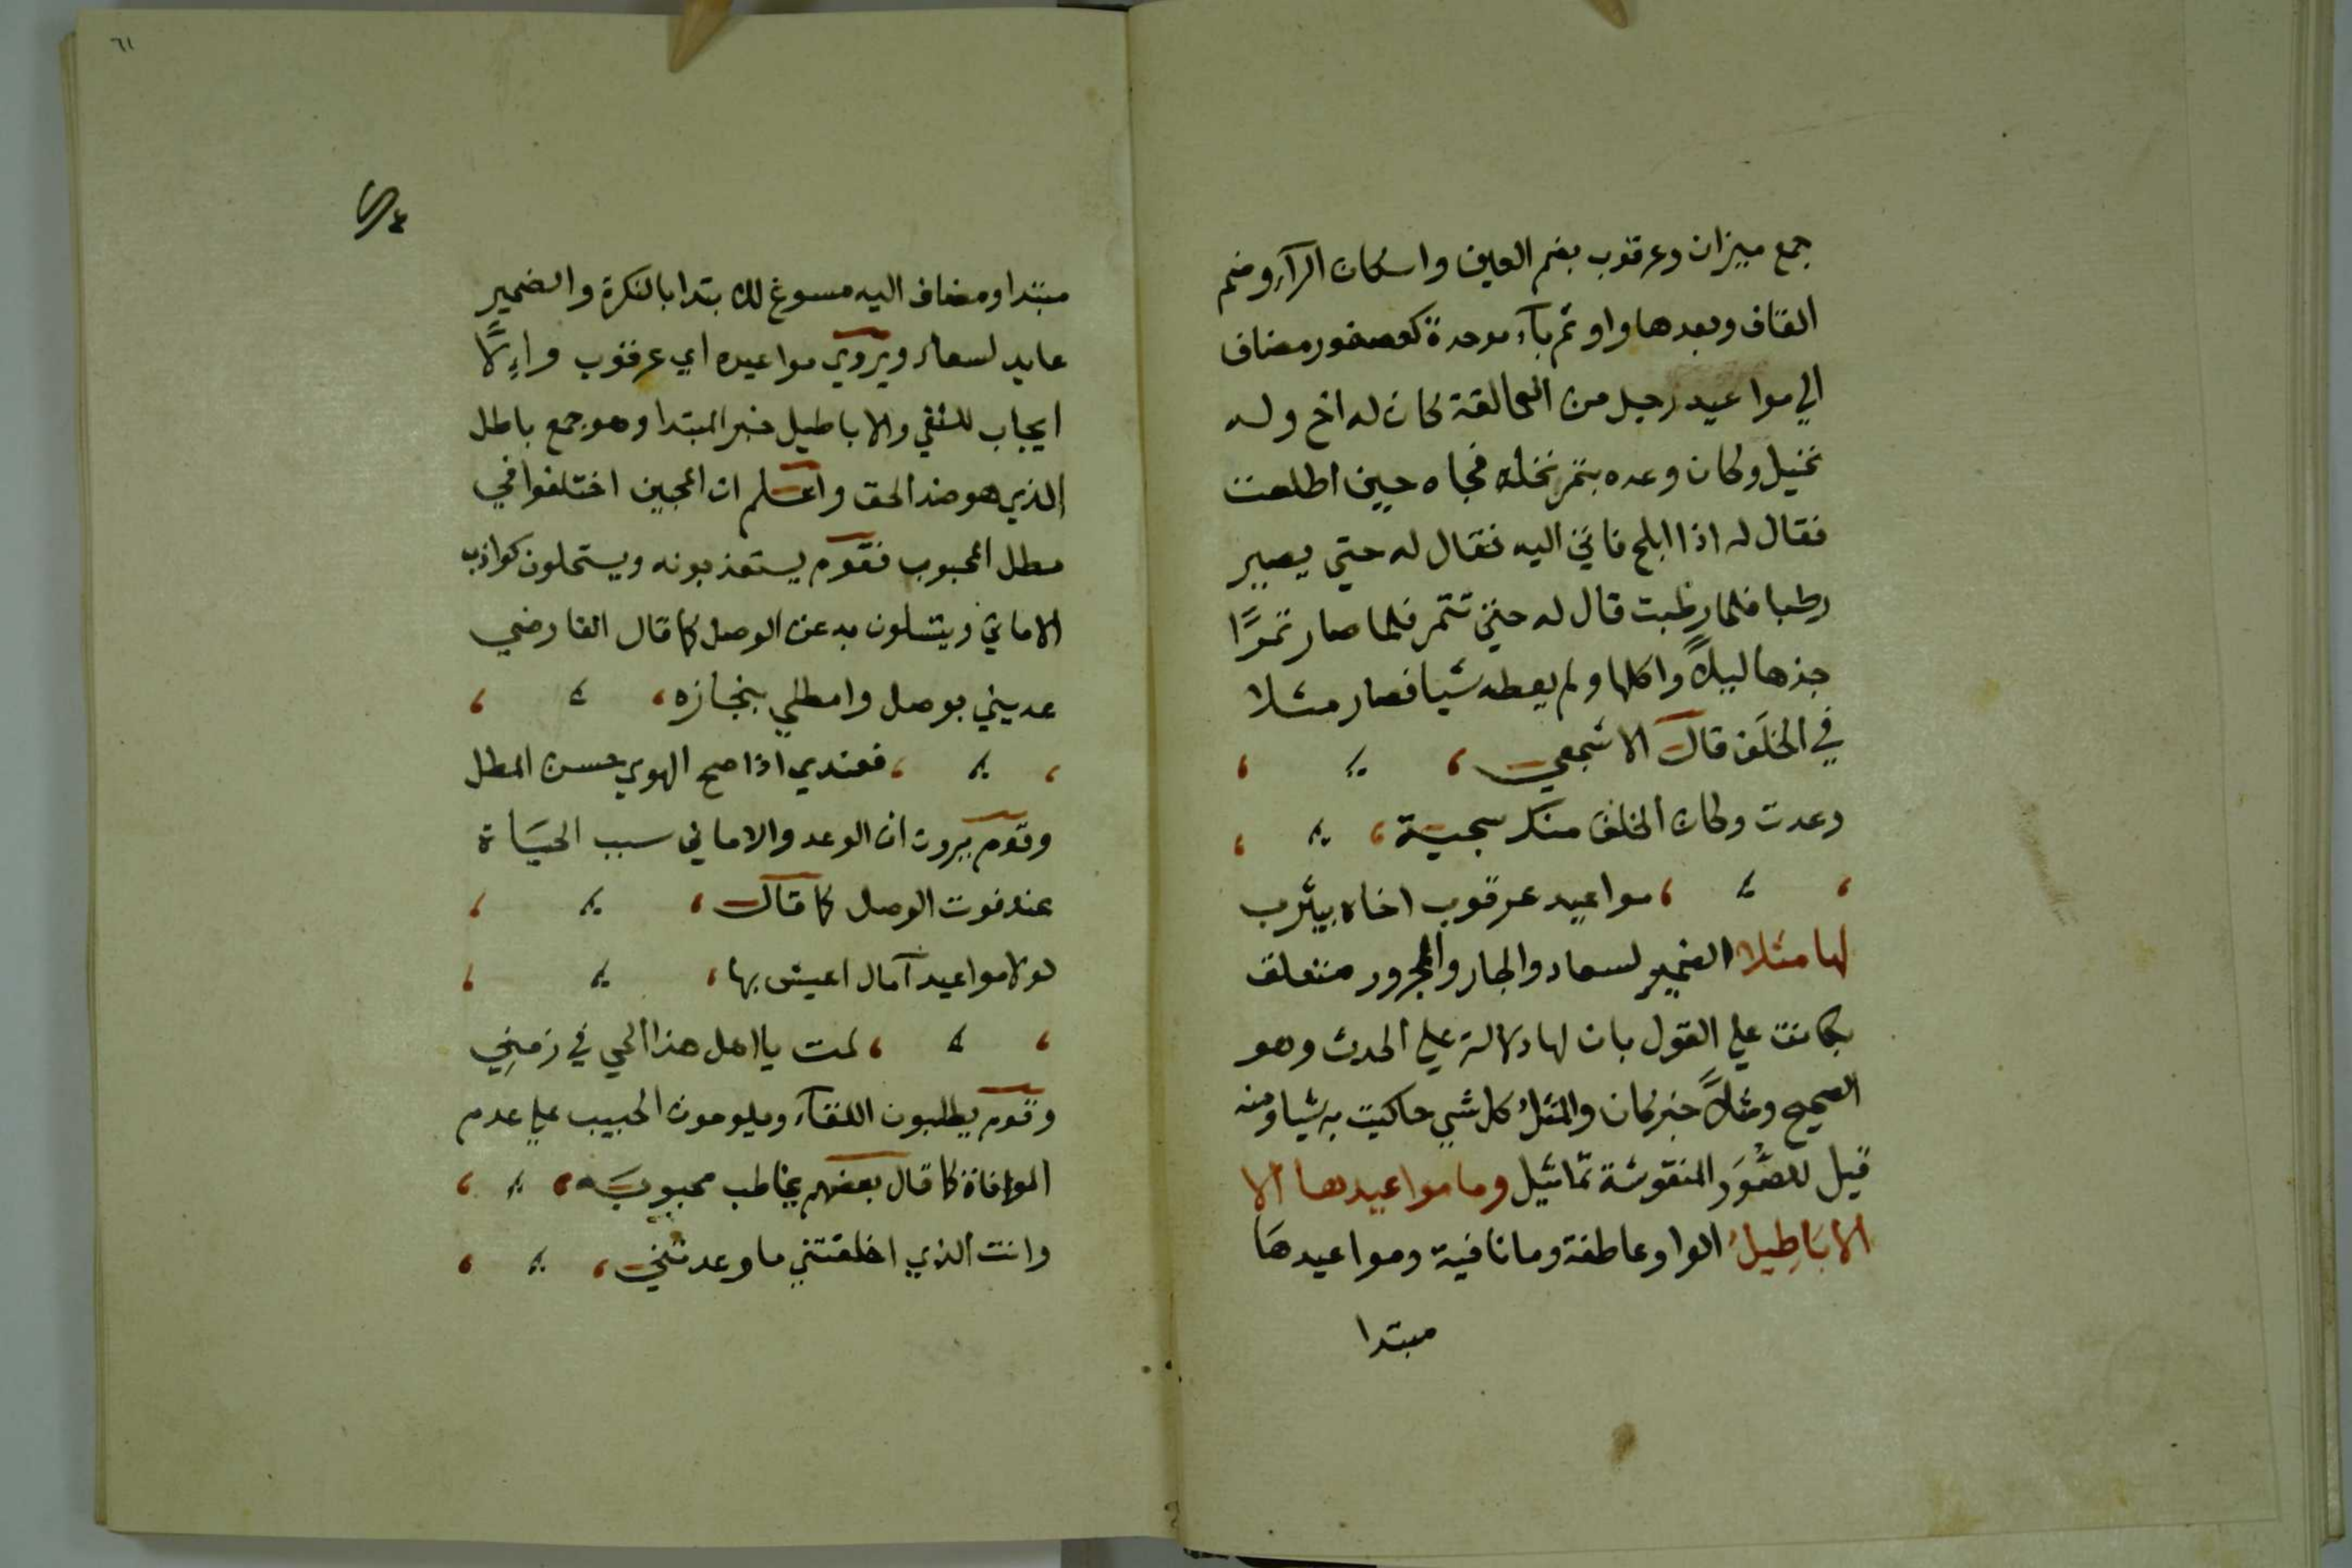 جمع ميزان وعرقوب بضم العين واسكان الرآء وضم
القاف وبعدها واو ثم بآء موحدة كعصفور مضاف
الي مواعيد رجل من العمالقة كان له اخ وله
نخيل وكان وعده بتمر نخله فجاه حين اطلعت
فقال له اذا ابلح فاتي اليه فقال له حتي يصير
رطبا فلما رطبت قال له حتي تتمر فلما صار تمرًا
جذها ليلاً واكلها ولم يعطه شيا فصار مثلا
في الخلَف قال الاشجعي
وعدت وكان الخلف منك سجية
مواعيد عرقوب اخاه بيثرب
لها مثلا الضمير لسعاد والجار والمجرور متعلق
بكانت علي القول بان لها دلالة علي الحدث وهو
الصحيح ومثلاً خبر كان والمثلُ كل شي حاكيت به شيا ومنه
قيل للصُّوَر المنقوشة تماثيل وما مواعيدها الا
الاباطِيلُ الواو عاطفة وما نافية ومواعيدهَا
مبتدا
٦١
مبتدا ومضاف اليه مسوغ للابتدا بالنكرة والضمير
عايد لسعاد ويروي مواعيده اي عرقوب واِلاًّ
ايجاب للنفي والاباطيل خبر المبتدا وهو جمع باطل
الذي هو ضد الحق واعلم ان المحبين اختلفوا في
مطل المحبوب فقوم يستعذبونه ويستحلون كواذب
الاماني ويتسلون به عن الوصل كما قال الفارضي
عديني بوصل وامطلي بنجازه
فعندي اذا صح الهوي حسن المطل
وقوم يرون ان الوعد والاماني سبب الحيَاة
عند فوت الوصل كما قال
لولا مواعيد آمال اعيش بها
لمت يا اهل هذا الحي في زمنِي
وقوم يطلبون اللقآء ويلومون الحبيب علي عدم
الموافاة كما قال بعضهم يخاطب محبوبَه
وانت الذي اخلفتني ما وعدتني